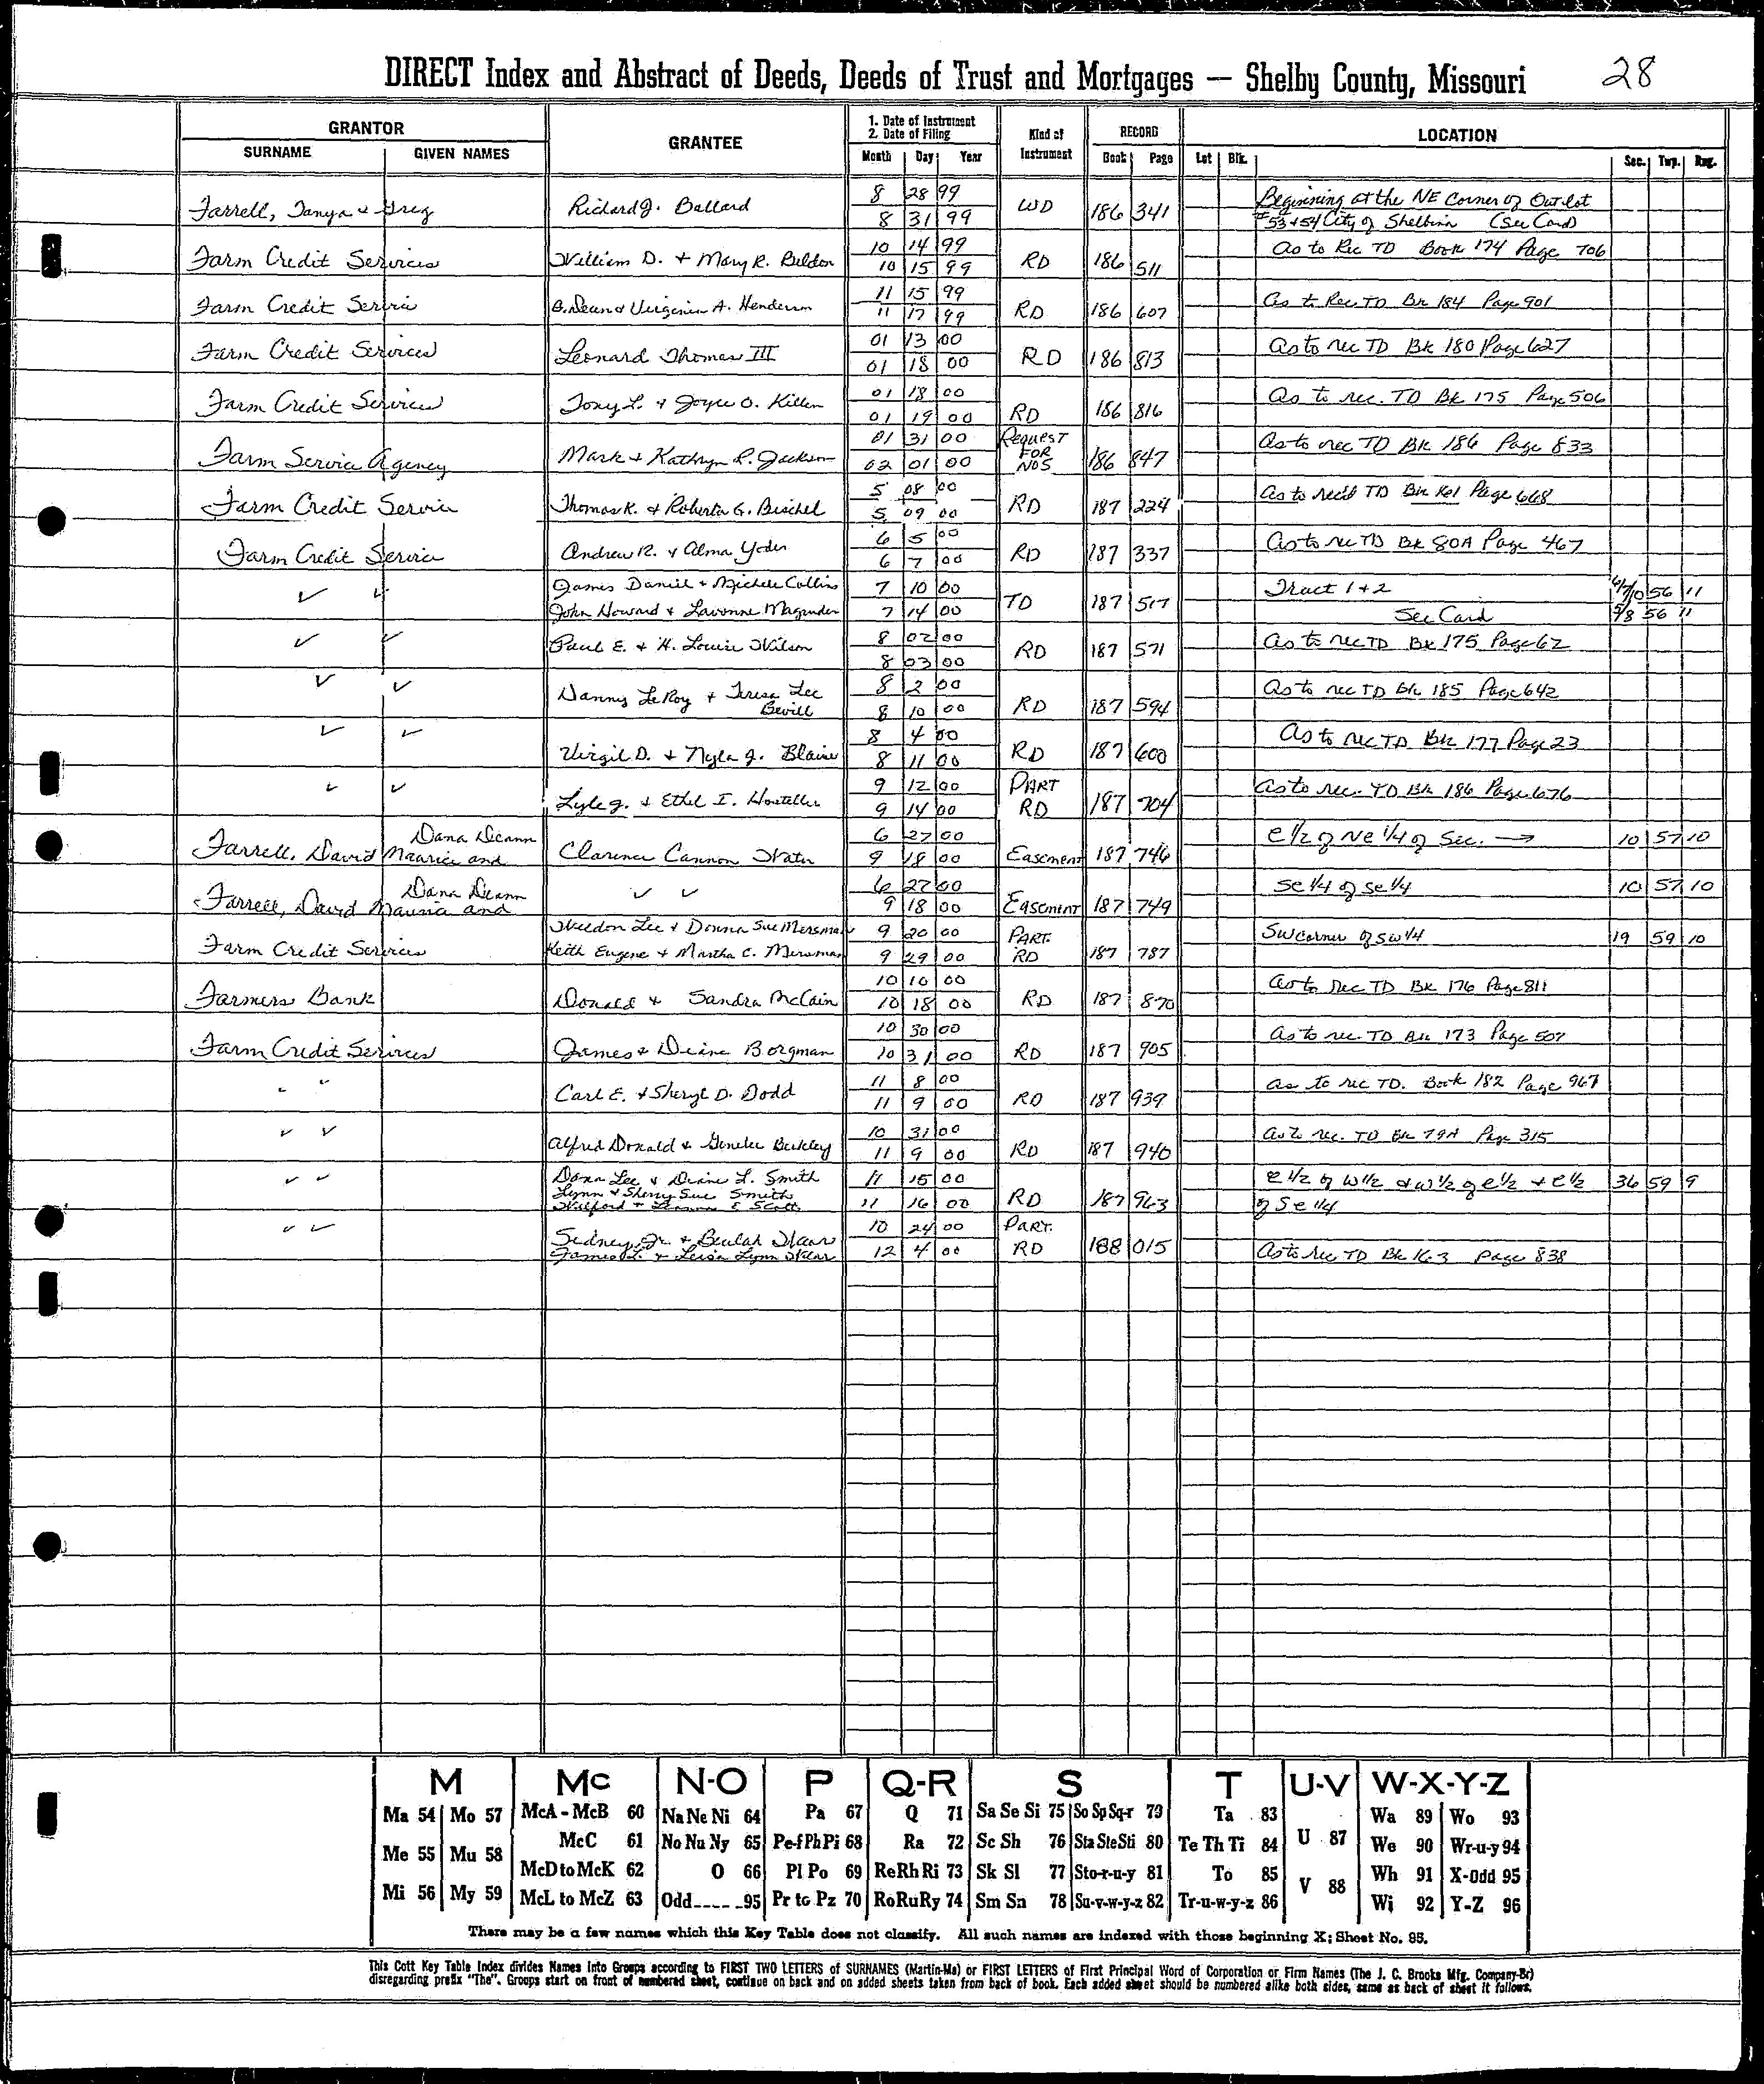 DIRECT Index and Abstract of Deeds, Deeds of Trust and Mortgages — Shelby County, Missouri 28
GRANTOR GRANTEE 1. Date of Instrument 2. Date of Filing Kind of Instrument RECORD LOCATION
SURNAME GIVEN NAMES Month Day Year Book Page Lot Blk. Sec. Twp. Rng.
Farrell, Tanya & Greg Richard J. Ballard 8 28 99 WD 186 341 Beginning at the NE Corner of Outlot
8 31 99 #53+54 City of Shelbina (See Card)
Farm Credit Services William D. + Mary R. Buldon 10 14 99 RD 186 511 As to Rec TD Book 174 Page 706
10 15 99
Farm Credit Service B. Dean & Virginia A. Henderson 11 15 99 RD 186 607 As to Rec TD Bk 184 Page 901
11 17 99
Farm Credit Services Leonard Thomas III 01 13 00 RD 186 813 As to rec TD Bk 180 Page 627
01 18 00
Farm Credit Services Tony L. + Joyce O. Killen 01 18 00 RD 186 816 As to rec. TD Bk 175 Page 506
01 19 00
Farm Service Agency Mark + Kathryn R. Jackson 01 31 00 Request FOR NOS 186 847 As to rec TD Bk 186 Page 833
02 01 00
Farm Credit Service Thomas K. & Roberta G. Bischel 5 08 00 RD 187 224 As to rec'd TD Bk 161 Page 668
5 09 00
Farm Credit Service Andrew R. & Alma Yoder 6 5 00 RD 187 337 As to rec TD Bk 80A Page 467
6 7 00
✓ ✓ James Daniel + Michele Collins 7 10 00 TD 187 517 Tract 1+2 56 11
John Howard & Lavonne Magruder 7 14 00 See Card 5/8 56 11
✓ ✓ Paul E. + H. Louise Wilson 8 02 00 RD 187 571 As to rec TD Bk 175 Page 62
8 03 00
✓ ✓ Danny LeRoy + Teresa Lee 8 2 00 RD 187 594 As to rec TD Bk 185 Page 642
Bevill 8 10 00
✓ ✓ Virgil D. + Nyla J. Blaine 8 4 00 RD 187 600 As to rec TD Bk 177 Page 23
8 11 00
✓ ✓ Lyle J. & Ethel I. Hostetler 9 12 00 PART RD 187 704 As to rec. TD Bk 186 Page 676
9 14 00
Farrell, David Maurice and Dana Deann Clarence Cannon Water 6 27 00 Easement 187 746 E 1/2 of NE 1/4 of Sec. → 10 57 10
9 18 00
Farrell, David Maurice and Dana Deann ✓ ✓ 6 27 00 Easement 187 749 SE 1/4 of SE 1/4 10 57 10
9 18 00
Farm Credit Services Weldon Lee & Donna Sue Mersman 9 20 00 PART. RD 187 787 SW corner of SW 1/4 19 59 10
Keith Eugene + Martha C. Mersman 9 29 00
Farmers Bank Donald & Sandra McClain 10 10 00 RD 187 870 As to rec TD Bk 176 Page 811
10 18 00
Farm Credit Services James & Diane Borgman 10 30 00 RD 187 905 As to rec. TD Bk 173 Page 507
10 31 00
" " Carl E. & Sheryl D. Dodd 11 8 00 RD 187 939 As to rec TD. Book 182 Page 967
11 9 00
✓ ✓ Alfred Donald & Genelee Berkley 10 31 00 RD 187 940 As to rec. TD Bk 79A Page 315
11 9 00
✓ ✓ Dona Lee & Diane L. Smith 11 15 00 RD 187 963 E 1/2 of W 1/2 & W 1/2 of E 1/2 + E 1/2 36 59 9
Lynn & Sherry Sue Smith 11 16 00 of SE 1/4
Wilford + E Scott
✓ ✓ Sidney, Jr. + Beulah 10 24 00 PART. RD 188 015 As to rec TD Bk 163 Page 838
James L. & Leisa Lynn 12 4 00
M Mc N-O P Q-R S T U-V W-X-Y-Z
Ma 54 Mo 57 McA - McB 60 Na Ne Ni 64 Pa 67 Q 71 Sa Se Si 75 So Sp Sq-r 79 Ta 83 U 87 Wa 89 Wo 93
Me 55 Mu 58 McC 61 No Nu Ny 65 Pe-f Ph Pi 68 Ra 72 Sc Sh 76 Sta Ste Sti 80 Te Th Ti 84 We 90 Wr-u-y 94
McD to McK 62 O 66 Pl Po 69 Re Rh Ri 73 Sk Sl 77 Sto-r-u-y 81 To 85 V 88 Wh 91 X-Odd 95
Mi 56 My 59 McL to McZ 63 Odd 95 Pr to Pz 70 Ro Ru Ry 74 Sm Sn 78 Su-v-w-y-z 82 Tr-u-w-y-z 86 Wi 92 Y-Z 96
There may be a few names which this Key Table does not classify. All such names are indexed with those beginning X; Sheet No. 95.
This Cott Key Table Index divides Names Into Groups according to FIRST TWO LETTERS of SURNAMES (Martin-Ma) or FIRST LETTERS of First Principal Word of Corporation or Firm Names (The J. C. Brooks Mfg. Company-Br)
disregarding prefix "The". Groups start on front of numbered sheet, continue on back and on added sheets taken from back of book. Each added sheet should be numbered alike both sides, same as back of sheet it follows.